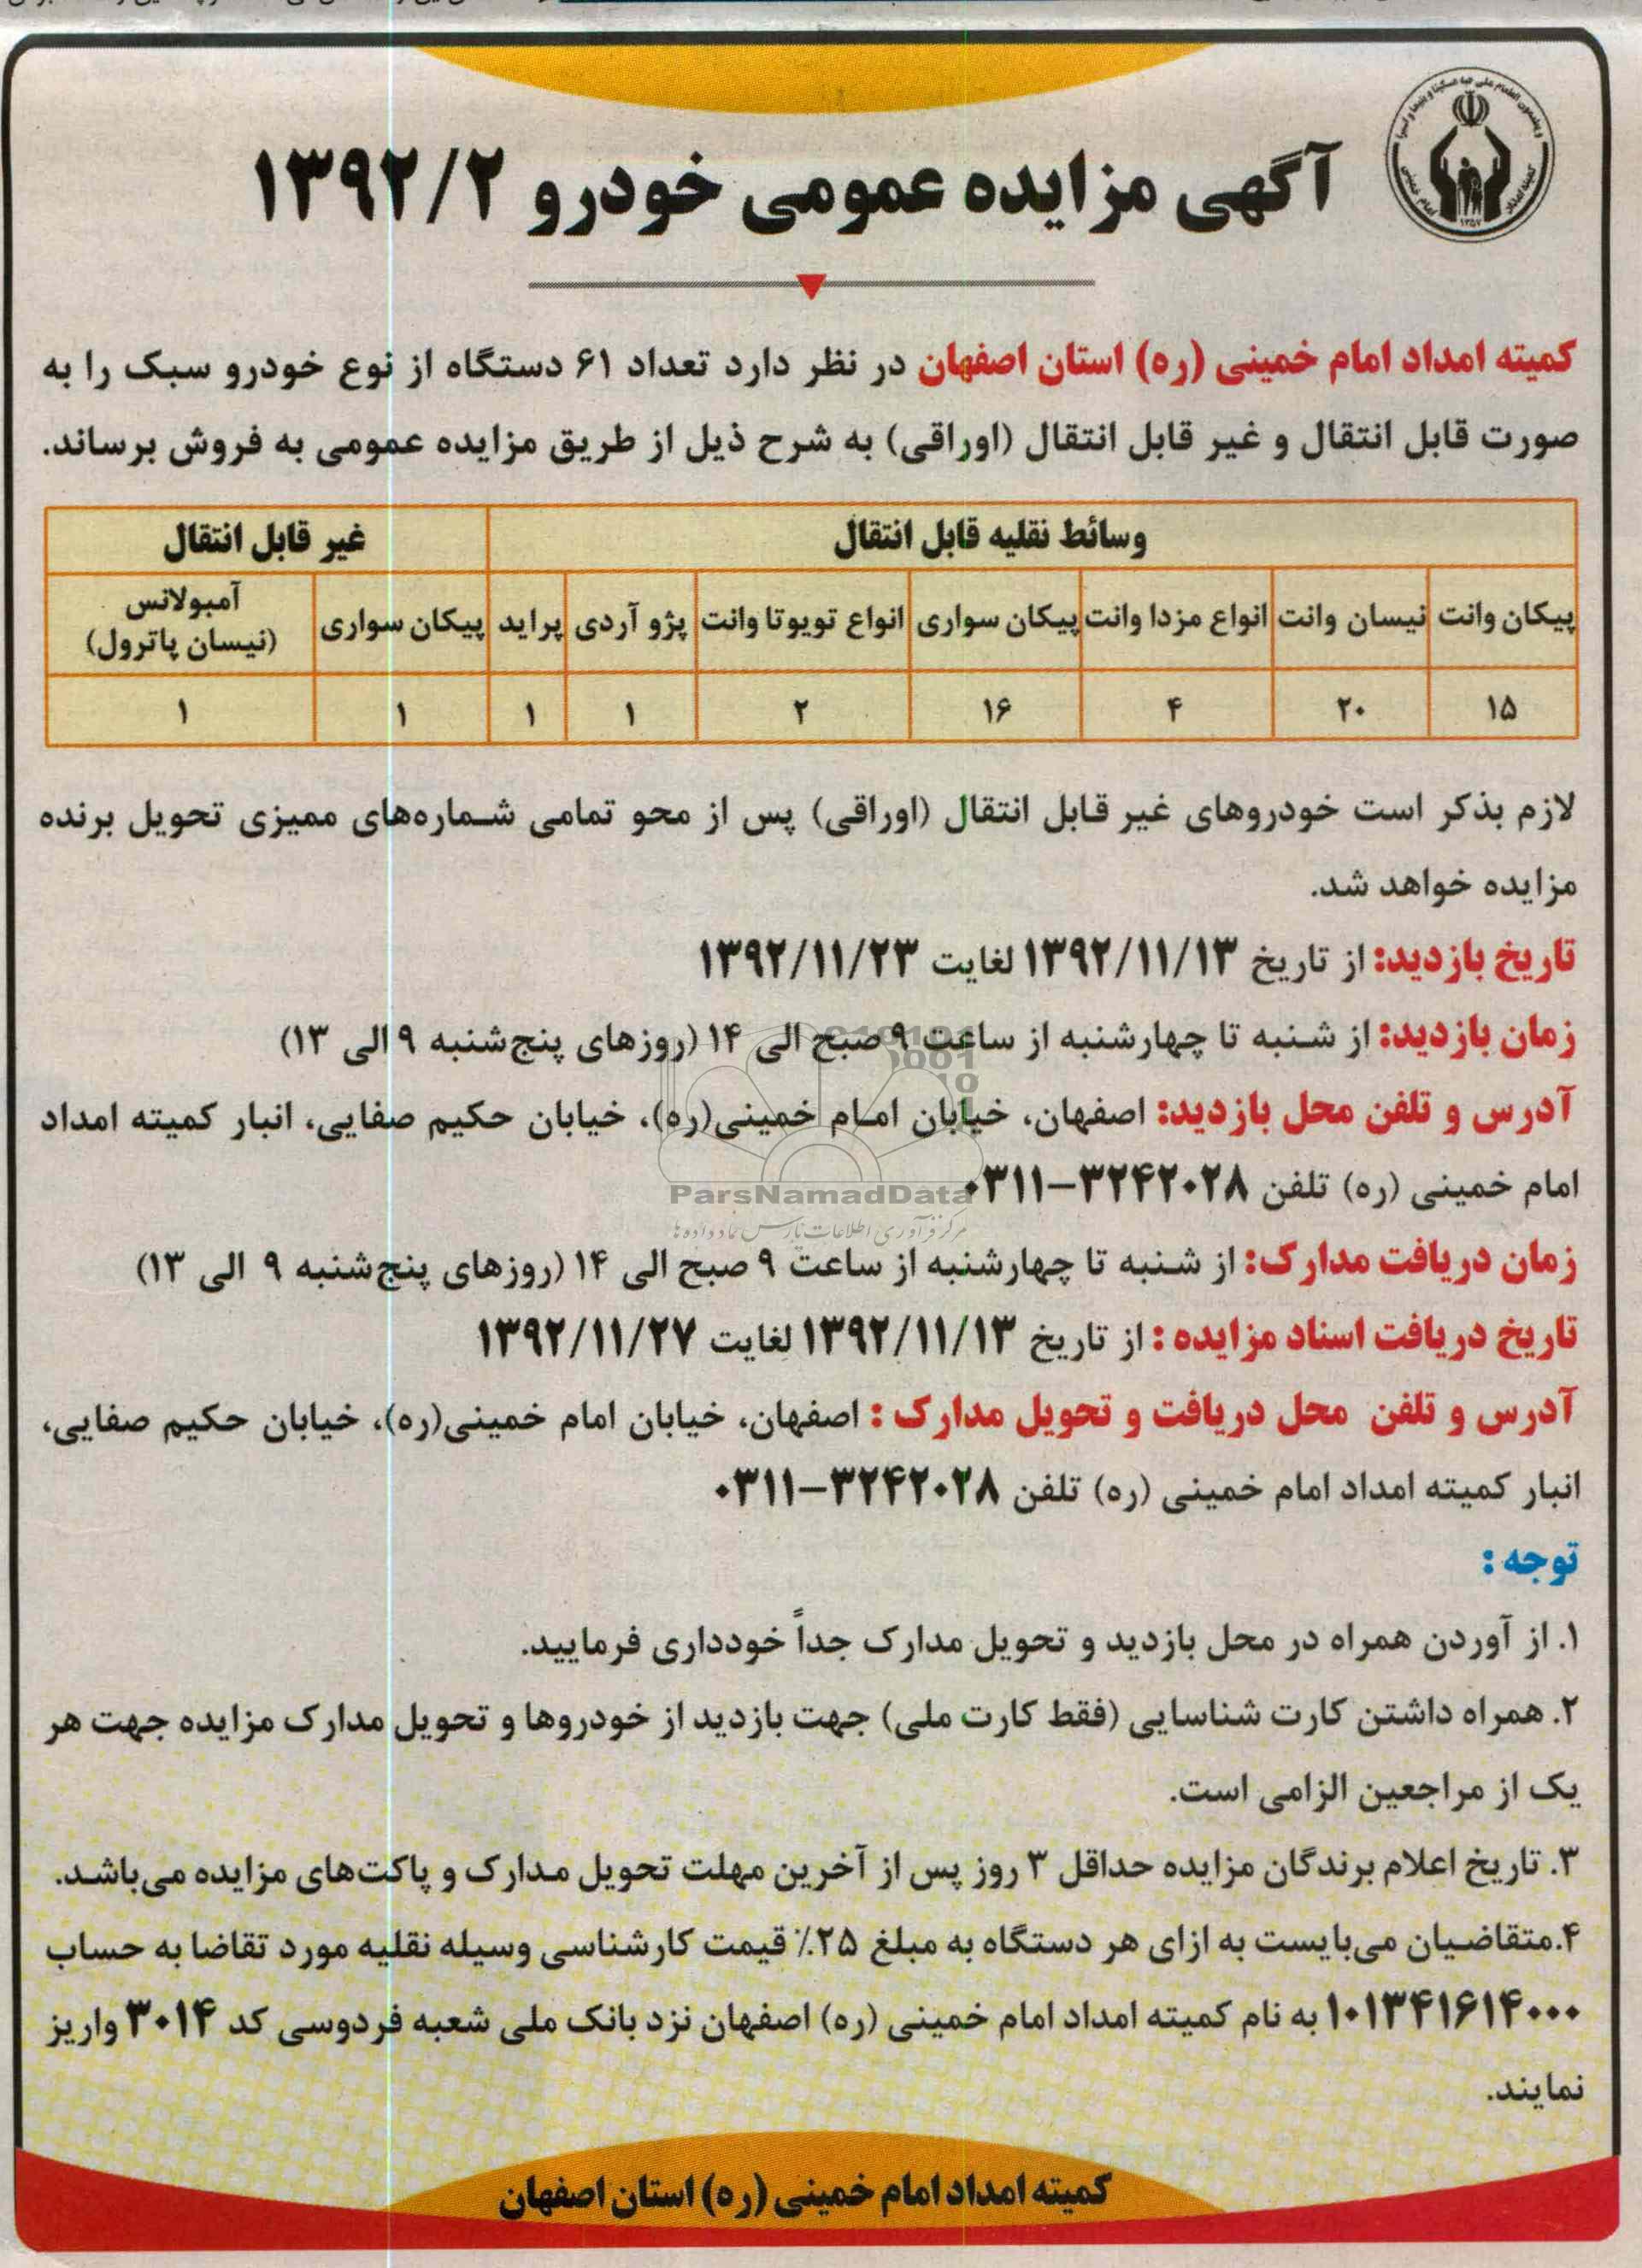 آگهی مزایده عمومی خودرو ۱۳۹۲/۲
۱۳۵۷
کمیته امداد امام خمینی (ره) استان اصفهان در نظر دارد تعداد ۶۱ دستگاه از نوع خودرو سبک را به
صورت قابل انتقال و غیر قابل انتقال (اوراقی) به شرح ذیل از طریق مزایده عمومی به فروش برساند.
وسائط نقلیه قابل انتقال غیر قابل انتقال
پیکان وانت نیسان وانت انواع مزدا وانت پیکان سواری انواع تویوتا وانت پژو آردی پراید پیکان سواری آمبولانس
(نیسان پاترول)
۱۵ ۲۰ ۴ ۱۶ ۲ ۱ ۱ ۱ ۱
لازم بذکر است خودروهای غیر قابل انتقال (اوراقی) پس از محو تمامی شماره‌های ممیزی تحویل برنده
مزایده خواهد شد.
تاریخ بازدید: از تاریخ ۱۳۹۲/۱۱/۱۳ لغایت ۱۳۹۲/۱۱/۲۳
زمان بازدید: از شنبه تا چهارشنبه از ساعت ۹ صبح الی ۱۴ (روزهای پنج‌شنبه ۹ الی ۱۳)
آدرس و تلفن محل بازدید: اصفهان، خیابان امام خمینی(ره)، خیابان حکیم صفایی، انبار کمیته امداد
امام خمینی (ره) تلفن ۳۲۴۲۰۲۸-۰۳۱۱
ParsNamadData
مرکز فرآوری اطلاعات پارس نماد داده ها
زمان دریافت مدارک: از شنبه تا چهارشنبه از ساعت ۹ صبح الی ۱۴ (روزهای پنج‌شنبه ۹ الی ۱۳)
تاریخ دریافت اسناد مزایده : از تاریخ ۱۳۹۲/۱۱/۱۳ لغایت ۱۳۹۲/۱۱/۲۷
آدرس و تلفن محل دریافت و تحویل مدارک : اصفهان، خیابان امام خمینی(ره)، خیابان حکیم صفایی،
انبار کمیته امداد امام خمینی (ره) تلفن ۳۲۴۲۰۲۸-۰۳۱۱
توجه :
۱. از آوردن همراه در محل بازدید و تحویل مدارک جداً خودداری فرمایید.
۲. همراه داشتن کارت شناسایی (فقط کارت ملی) جهت بازدید از خودروها و تحویل مدارک مزایده جهت هر
یک از مراجعین الزامی است.
۳. تاریخ اعلام برندگان مزایده حداقل ۳ روز پس از آخرین مهلت تحویل مدارک و پاکت‌های مزایده می‌باشد.
۴.متقاضیان می‌بایست به ازای هر دستگاه به مبلغ ۲۵٪ قیمت کارشناسی وسیله نقلیه مورد تقاضا به حساب
۱۰۱۳۴۱۶۱۴۰۰۰ به نام کمیته امداد امام خمینی (ره) اصفهان نزد بانک ملی شعبه فردوسی کد ۳۰۱۴ واریز
نمایند.
کمیته امداد امام خمینی (ره) استان اصفهان